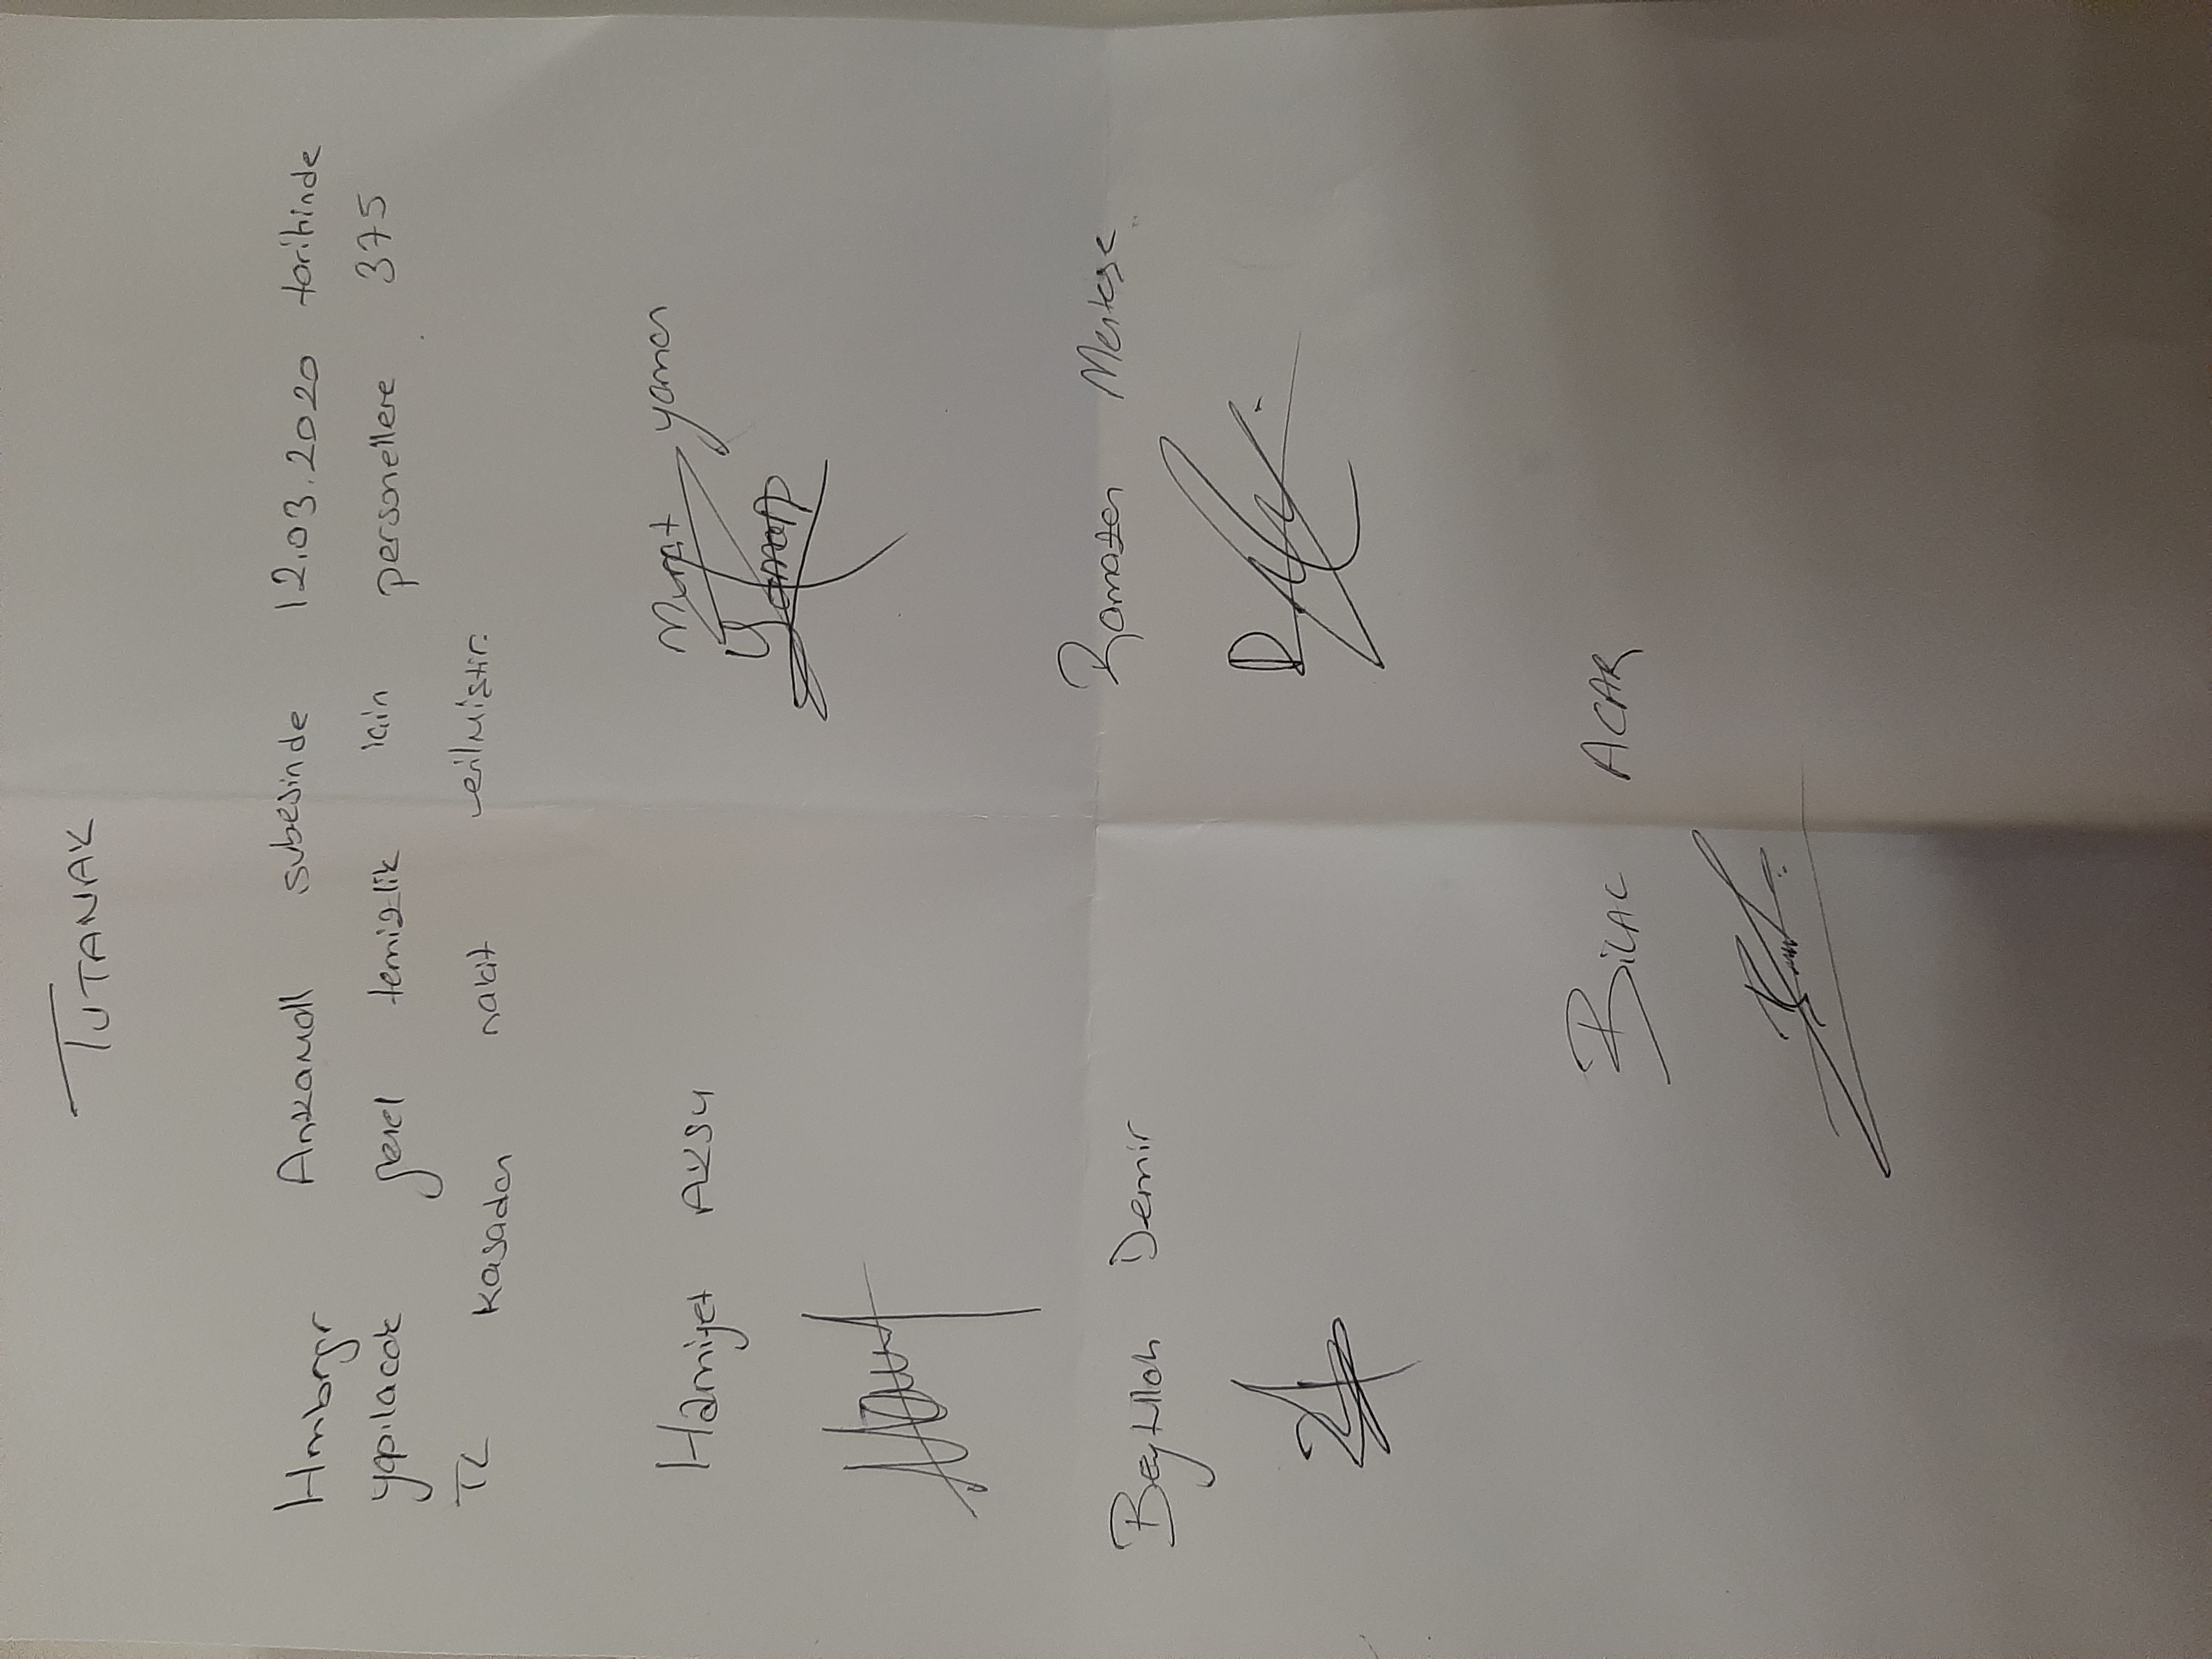 TUTANAK
Hmbrgr Ankamall subesinde 12.03.2020 tarihinde
yapılacak genel temizlik icin personellere 375
TL kasadan nakit verilmiştir.
Hamiyet AKSU
Murat yaman
Yaman
Beytullah Demir
Ramazan Mentese
BİLAL ACAR